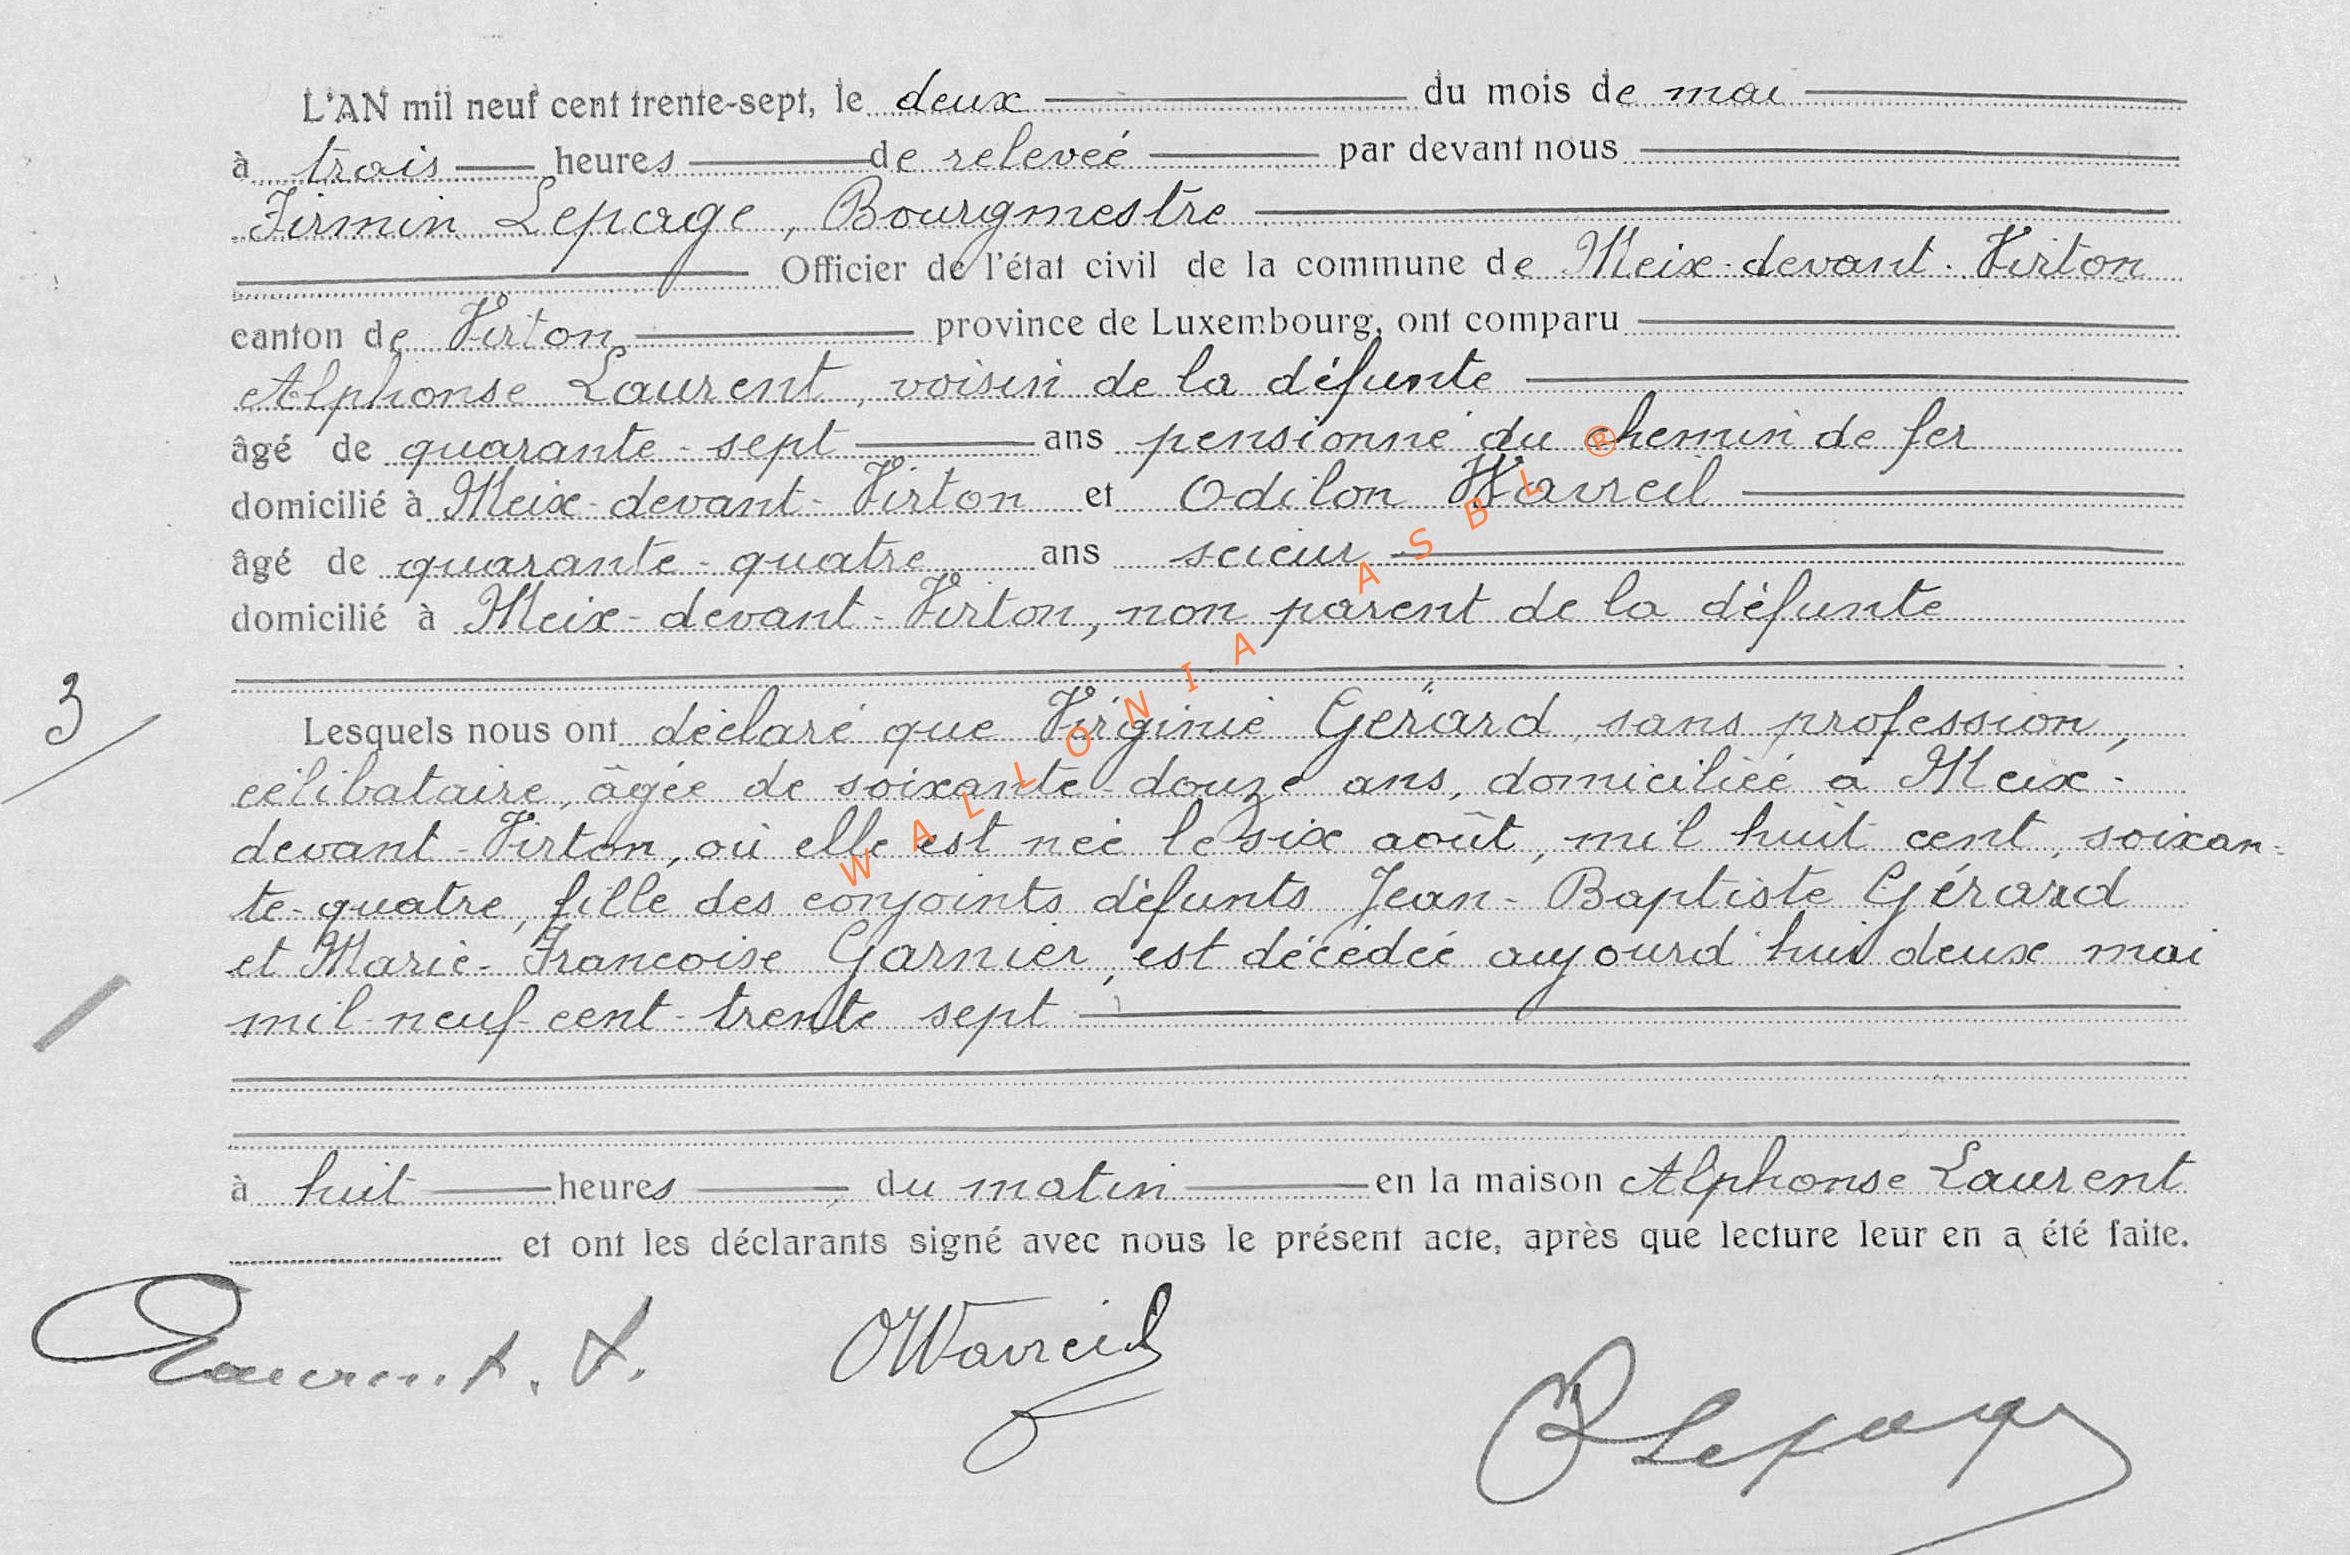 L'AN mil neuf cent trente-sept, le deux du mois de mai
à trois heures de relevée par devant nous
Firmin Lepage, Bourgmestre
Officier de l'état civil de la commune de Meix-devant-Virton
canton de Virton province de Luxembourg, ont comparu
Alphonse Laurent, voisin de la défunte
âgé de quarante-sept ans pensionné du chemin de fer
domicilié à Meix-devant-Virton et Odilon Wavreil
âgé de quarante-quatre ans scieur
domicilié à Meix-devant-Virton, non parent de la défunte
3
Lesquels nous ont déclaré que Virginie Gérard, sans profession,
célibataire, âgée de soixante-douze ans, domiciliée à Meix-
devant-Virton, où elle est née le six août, mil huit cent, soixan-
te-quatre, fille des conjoints défunts Jean-Baptiste Gérard
et Marie-Francoise Garnier, est décédée aujourd'hui deux mai
mil-neuf-cent-trente sept
à huit heures, du matin en la maison Alphonse Laurent
et ont les déclarants signé avec nous le présent acte, après que lecture leur en a été faite.
Laurent. A. OWavreil Lepage
WALLONIA ASBL ®